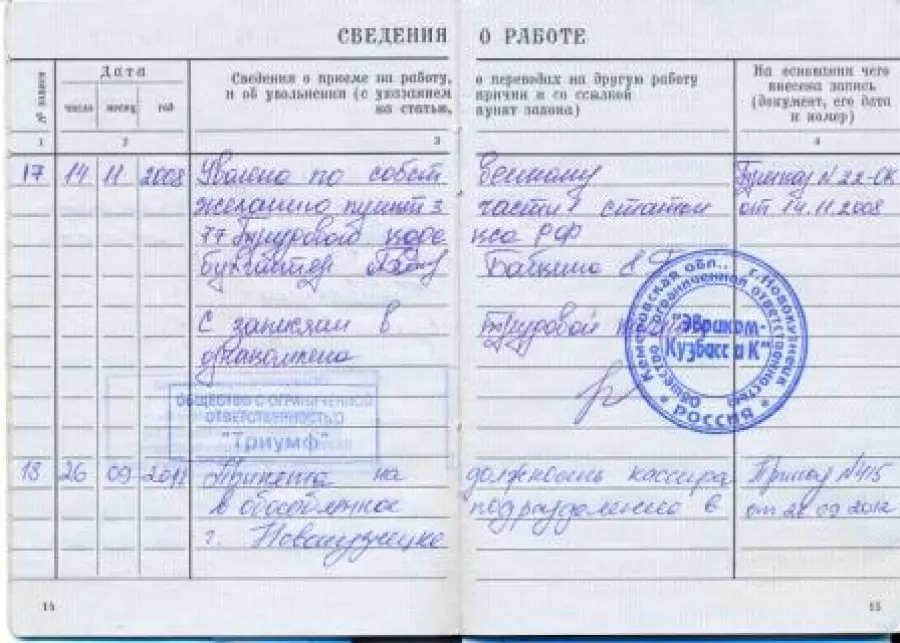 СВЕДЕНИЯ О РАБОТЕ
№ записи
Дата
число месяц год
Сведения о приеме на работу, о переводах на другую работу
и об увольнении (с указанием причин и со ссылкой
на статью, пункт закона)
На основании чего
внесена запись
(документ, его дата
и номер)
1 2 3 4
17 14 11 2008 Уволена по собст венному Приказ N 22-ок
желанию пункт 3 части 1 статьи от 14.11.2008
77 Трудового коде кса РФ
бухгалтер Бабкина
С записями в трудовой
ознакомлена
"Эвриком-
Кузбасс и К"
Кемеровская обл., г. Новокузнецк
Общество с ограниченной ответственностью
* РОССИЯ *
ОБЩЕСТВО С ОГРАНИЧЕННОЙ
ОТВЕТСТВЕННОСТЬЮ
"Триумф"
13 26 09 2012 Принята на должность кассира Приказ N415
в обособленное подразделение в от 26 09 2012
г. Новокузнецке
14
15